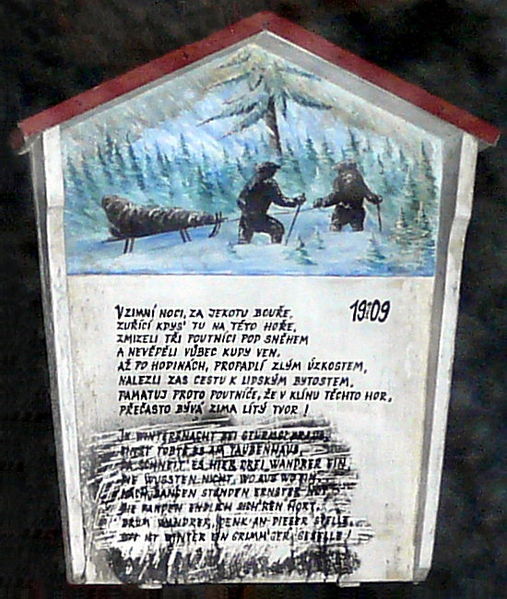 V ZIMNÍ NOCI, ZA JEKOTU BOUŘE,
1909
ZUŘÍCÍ KDYS' TU NA TÉTO HOŘE,
ZMIZELI TŘI POUTNÍCI POD SNĚHEM
A NEVĚDĚLI VŮBEC KUDY VEN.
AŽ PO HODINÁCH, PROPADLÍ ZLÝM ÚZKOSTEM,
NALEZLI ZAS CESTU K LIDSKÝM BYTOSTEM,
PAMATUJ PROTO POUTNÍČE, ŽE V KLÍNU TĚCHTO HOR,
PŘEČASTO BÝVÁ ZIMA LÍTÝ TVOR !
WINTERSNACHT BEI
ES AM TAUBENHAUS,
SCHNEIT' ES HIER DREI WANDRER EIN
WUSSTEN NICHT, WO AUS
BANGEN STUNDEN ERNSTER
FANDEN ENDLICH HORT.
DRUM WANDRER, DENK AN DIESER STELLE,
WINTER EIN GRIMM'GER GESELLE !